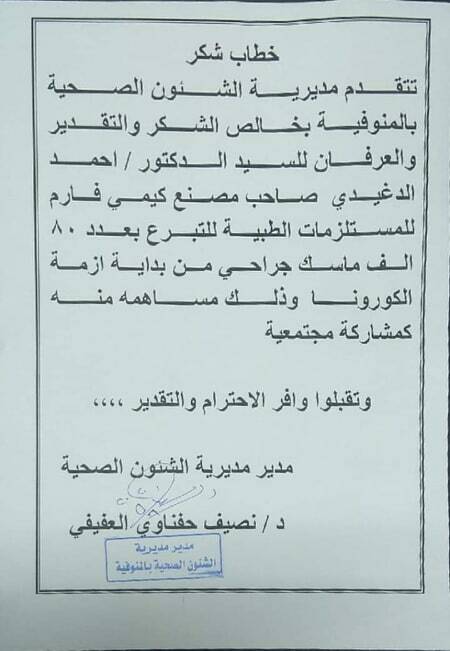 خطاب شكر
تتقدم مديرية الشئون الصحية
بالمنوفية بخالص الشكر والتقدير
والعرفان للسيد الدكتور / احمد
الدغيدي صاحب مصنع كيمي فارم
للمستلزمات الطبية للتبرع بعدد ٨٠
الف ماسك جراحي من بداية ازمة
الكورونا وذلك مساهمه منه
كمشاركة مجتمعية
وتقبلوا وافر الاحترام والتقدير ،،،،
مدير مديرية الشئون الصحية
د / نصيف حفناوي العفيفي
مدير مديرية
الشئون الصحية بالمنوفية